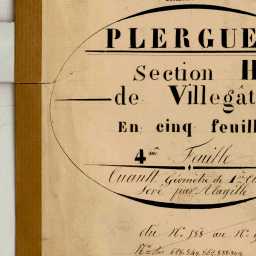 PLERGUE
Section H
de Villegât
En cinq feuill
4me Feuille
Géomètre de 1re
levé par
du N° 588 au N°